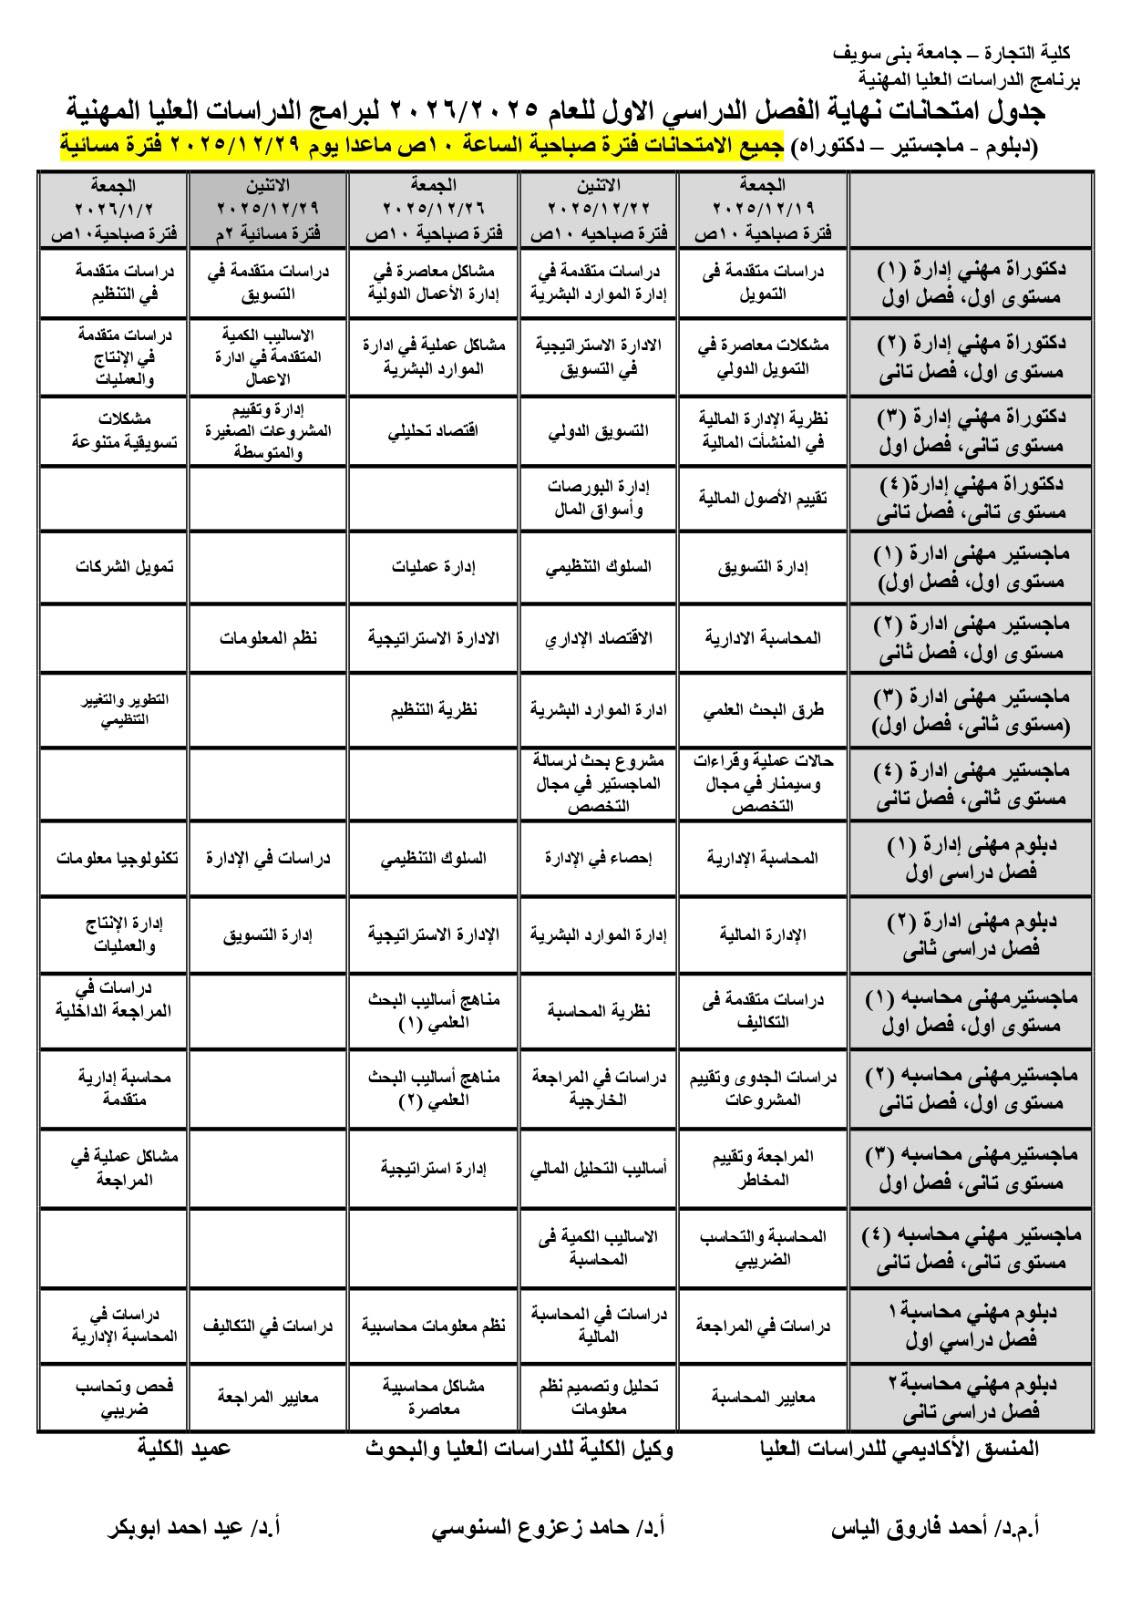 كلية التجارة – جامعة بنى سويف
برنامج الدراسات العليا المهنية
جدول امتحانات نهاية الفصل الدراسي الاول للعام ٢٠٢٦/٢٠٢٥ لبرامج الدراسات العليا المهنية
(دبلوم - ماجستير – دكتوراه) جميع الامتحانات فترة صباحية الساعة ١٠ص ماعدا يوم ٢٠٢٥/١٢/٢٩ فترة مسائية
الجمعة
٢٠٢٥/١٢/١٩
فترة صباحية ١٠ص
الاتنين
٢٠٢٥/١٢/٢٢
فترة صباحيه ١٠ص
الجمعة
٢٠٢٥/١٢/٢٦
فترة صباحية ١٠ص
الاتنين
٢٠٢٥/١٢/٢٩
فترة مسائية ٢م
الجمعة
٢٠٢٦/١/٢
فترة صباحية١٠ص
دكتوراة مهني إدارة (١)
مستوى اول، فصل اول
دراسات متقدمة فى
التمويل
دراسات متقدمة في
إدارة الموارد البشرية
مشاكل معاصرة في
إدارة الأعمال الدولية
دراسات متقدمة في
التسويق
دراسات متقدمة
في التنظيم
دكتوراة مهني إدارة (٢)
مستوى اول، فصل تانى
مشكلات معاصرة في
التمويل الدولي
الادارة الاستراتيجية
في التسويق
مشاكل عملية في ادارة
الموارد البشرية
الاساليب الكمية
المتقدمة في ادارة
الاعمال
دراسات متقدمة
في الإنتاج
والعمليات
دكتوراة مهني إدارة (٣)
مستوى تانى، فصل اول
نظرية الإدارة المالية
في المنشأت المالية
التسويق الدولي
اقتصاد تحليلي
إدارة وتقييم
المشروعات الصغيرة
والمتوسطة
مشكلات
تسويقية متنوعة
دكتوراة مهني إدارة(٤)
مستوى تانى، فصل تانى
تقييم الأصول المالية
إدارة البورصات
وأسواق المال
ماجستير مهنى ادارة (١)
مستوى اول، فصل اول)
إدارة التسويق
السلوك التنظيمي
إدارة عمليات
تمويل الشركات
ماجستير مهنى ادارة (٢)
مستوى اول، فصل ثانى
المحاسبة الادارية
الاقتصاد الإداري
الادارة الاستراتيجية
نظم المعلومات
ماجستير مهنى ادارة (٣)
(مستوى ثانى، فصل اول)
طرق البحث العلمي
ادارة الموارد البشرية
نظرية التنظيم
التطوير والتغيير
التنظيمي
ماجستير مهنى ادارة (٤)
مستوى ثانى، فصل تانى
حالات عملية وقراءات
وسيمنار في مجال
التخصص
مشروع بحث لرسالة
الماجستير في مجال
التخصص
دبلوم مهني إدارة (١)
فصل دراسى اول
المحاسبة الإدارية
إحصاء في الإدارة
السلوك التنظيمي
دراسات في الإدارة
تكنولوجيا معلومات
دبلوم مهنى ادارة (٢)
فصل دراسى ثانى
الإدارة المالية
إدارة الموارد البشرية
الإدارة الاستراتيجية
إدارة التسويق
إدارة الإنتاج
والعمليات
ماجستيرمهنى محاسبه (١)
مستوى اول، فصل اول
دراسات متقدمة فى
التكاليف
نظرية المحاسبة
مناهج أساليب البحث
العلمي (١)
دراسات في
المراجعة الداخلية
ماجستيرمهنى محاسبه (٢)
مستوى اول، فصل تانى
دراسات الجدوى وتقييم
المشروعات
دراسات في المراجعة
الخارجية
مناهج أساليب البحث
العلمي (٢)
محاسبة إدارية
متقدمة
ماجستيرمهنى محاسبه (٣)
مستوى تانى، فصل اول
المراجعة وتقييم
المخاطر
أساليب التحليل المالي
إدارة استراتيجية
مشاكل عملية في
المراجعة
ماجستير مهني محاسبه (٤)
مستوى تانى، فصل تانى
المحاسبة والتحاسب
الضريبي
الاساليب الكمية فى
المحاسبة
دبلوم مهني محاسبة١
فصل دراسي اول
دراسات في المراجعة
دراسات في المحاسبة
المالية
نظم معلومات محاسبية
دراسات في التكاليف
دراسات في
المحاسبة الإدارية
دبلوم مهني محاسبة٢
فصل دراسى تانى
معايير المحاسبة
تحليل وتصميم نظم
معلومات
مشاكل محاسبية
معاصرة
معايير المراجعة
فحص وتحاسب
ضريبي
المنسق الأكاديمي للدراسات العليا
وكيل الكلية للدراسات العليا والبحوث
عميد الكلية
أ.م.د/ أحمد فاروق الياس
أ.د/ حامد زعزوع السنوسي
أ.د/ عيد احمد ابوبكر